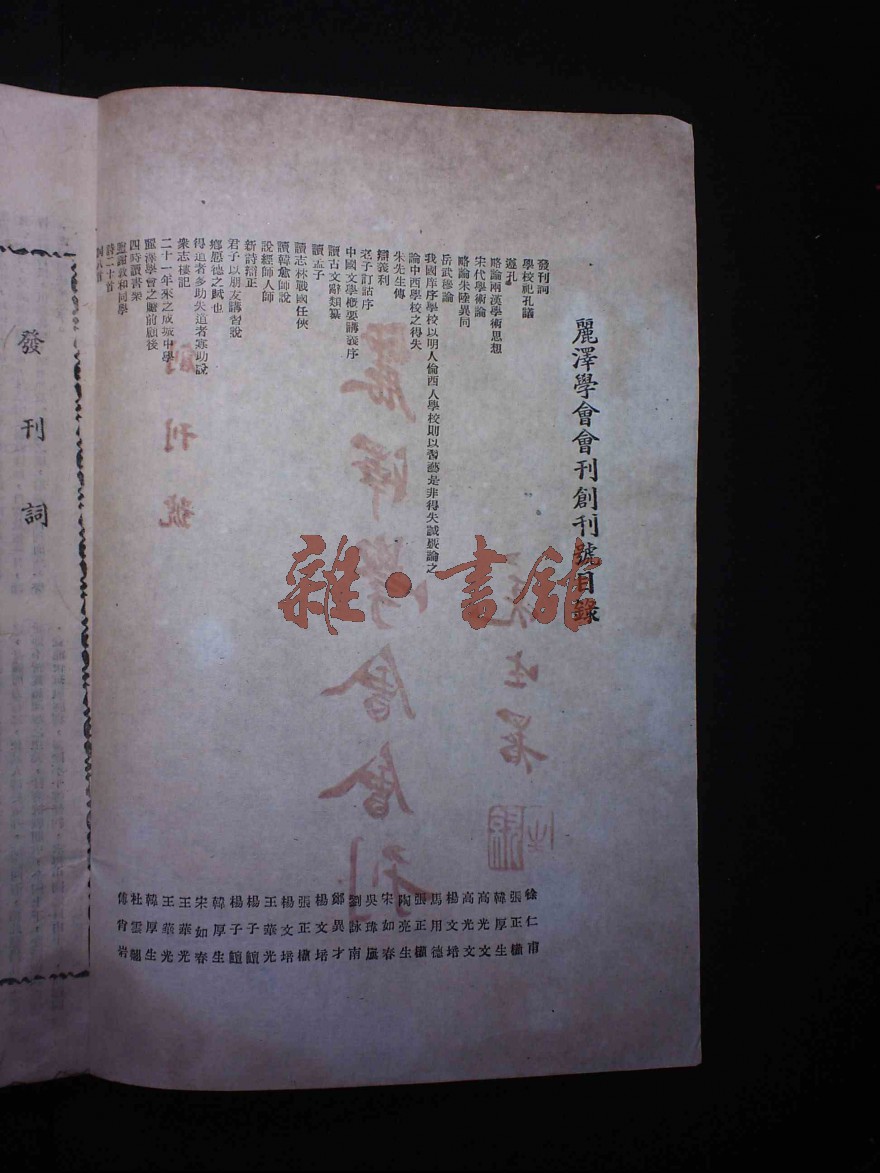 麗澤學會會刊創刊號目錄
發刊詞
學校祀孔議
遵孔
略論兩漢學術思想
宋代學術論
略論朱陸異同
岳武穆論
我國庠序學校以明人倫西人學校則以習藝是非得失試發論之
論中西學校之得失
朱先生傳
辯義利
老子訂詁序
中國文學概要講義序
讀古文辭類纂
讀孟子
讀志林戰國任俠
讀韓愈師說
說經師人師
新詩辯正
君子以朋友講習說
鄉愿德之賊也
得道者多助失道者寡助說
衆志樓記
二十一年來之成城中學
麗澤學會之瞻前顧後
四時讀書樂
慰謝敦和同學
詩二十首
徐仁甫
張正權
韓厚生
高光文
高光文
楊文培
馬用德
張正權
陶亮生
宋如春
吳瑋
劉詠南
鄭異才
楊文培
張正權
楊文培
王華光
楊子誼
楊子誼
韓厚生
宋如春
王華光
王華光
韓厚生
杜雲
傅肖岩
雜·書館
麗澤學會會刊
創刊號
發刊詞